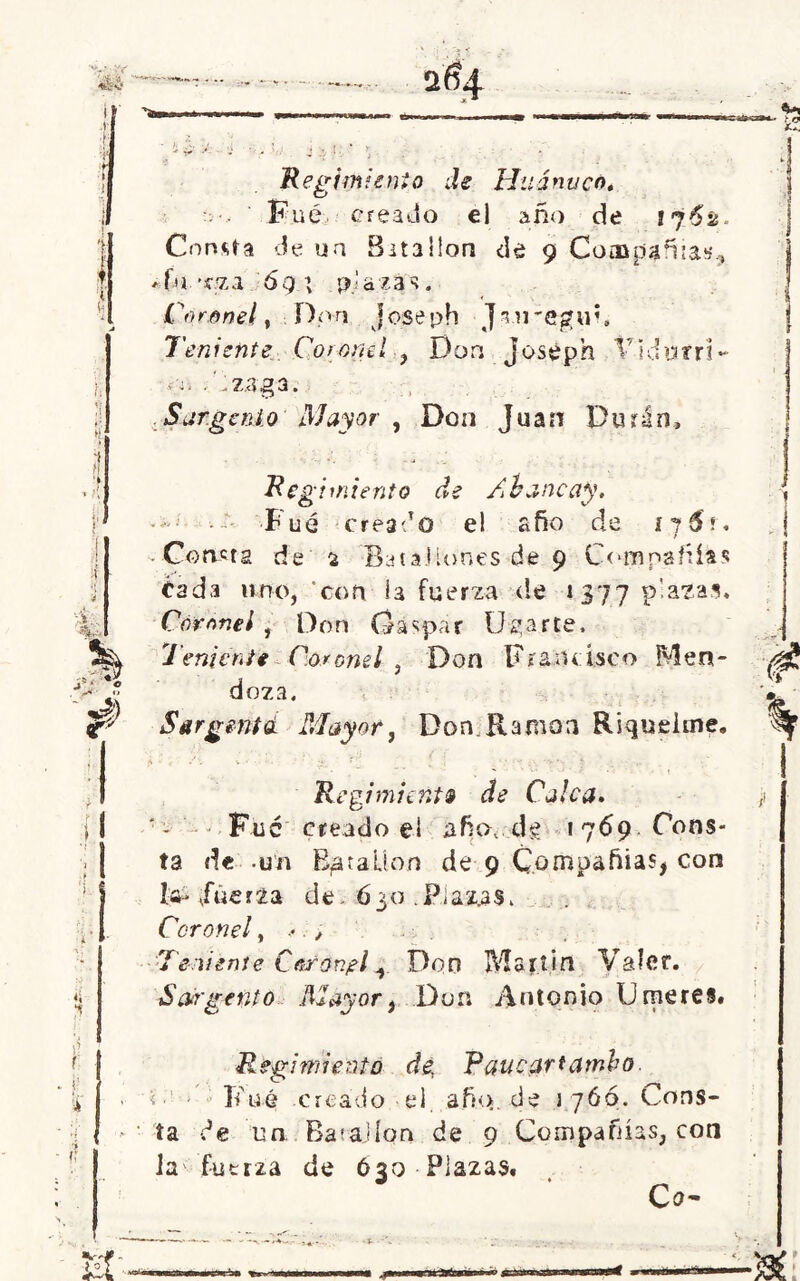 264
Regimiento de Huánuco.
Fué creado el año de 1762.
Consta de un Batallon de 9 Compañias,
691 plazas.
Coronel, Don Joseph
Teniente Coronel, Don Joseph Vidurri-
zaga.
Sargento Mayor, Don Juan Durán.
Regimiento de Abancay.
Fué creado el año de 1761.
Consta de 2 Batallones de 9 Compañías
cada uno, con la fuerza de 1377 plazas.
Coronel, Don Gaspar Ugarte.
Teniente Coronel, Don Francisco Men-
doza.
Sargento Mayor, Don Ramon Riquelme.
Regimiento de Calca.
Fué creado el año de 1769. Cons-
ta de un Batallon de 9 Compañias, con
la fuerza de 630 Plazas.
Coronel, . . ,
Teniente Coronel, Don Martin Valer.
Sargento Mayor, Don Antonio Umeres.
Regimiento de Paucartambo.
Fué creado el año de 1766. Cons-
ta de un Batallon de 9 Compañías, con
la fuerza de 630 Plazas.
Co-